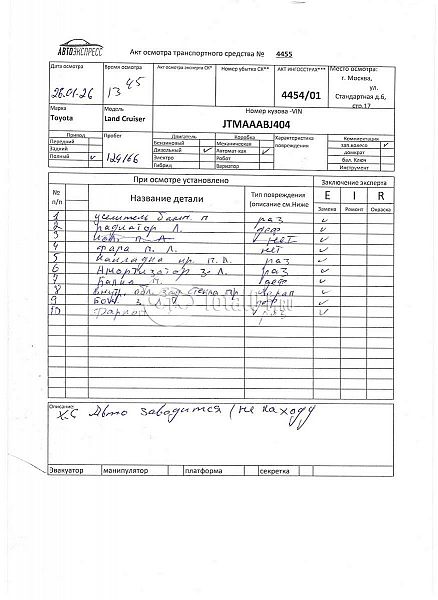 АВТОЭКСПРЕСС
Акт осмотра транспортного средства № 4455
Дата осмотра Время осмотра Акт осмотра эксперта СК* Номер убытка СК** АКТ ИНГОССТРАХ*** Место осмотра:
26.01.26 13 45 4454/01 г. Москва, ул. Стандартная д.6, стр.17
Марка Модель Номер кузова -VIN
Toyota Land Cruiser JTMAAABJ404
Привод Пробег Двигатель Коробка Характеристика повреждения Комплектация
Передний Бензиновый Механическая зап.колесо ✓
Задний Дизельный ✓ Автомат-кая ✓ домкрат
Полный ✓ 124166 Электро Робот бал. Ключ
Гибрид Вариатор Инструмент
При осмотре установлено Заключение эксперта
№ п/п Название детали Тип повреждения (описание см.Ниже E I R
Замена Ремонт Окраска
1 усилитель бамп. п раз ✓
2 радиатор Л. деф ✓
3 нет ✓
4 фара п. Л. нет ✓
5 накладка пр. п. раз ✓
6 Амортизатор з. Л. раз ✓
7 п. деф ✓
8 обл. стекла пр ✓
9 з. Л. деф ✓
10 раз ✓
Total01.ru
Описание:
Х.С Авто заводится (не на ходу
Эвакуатор манипулятор платформа секретка